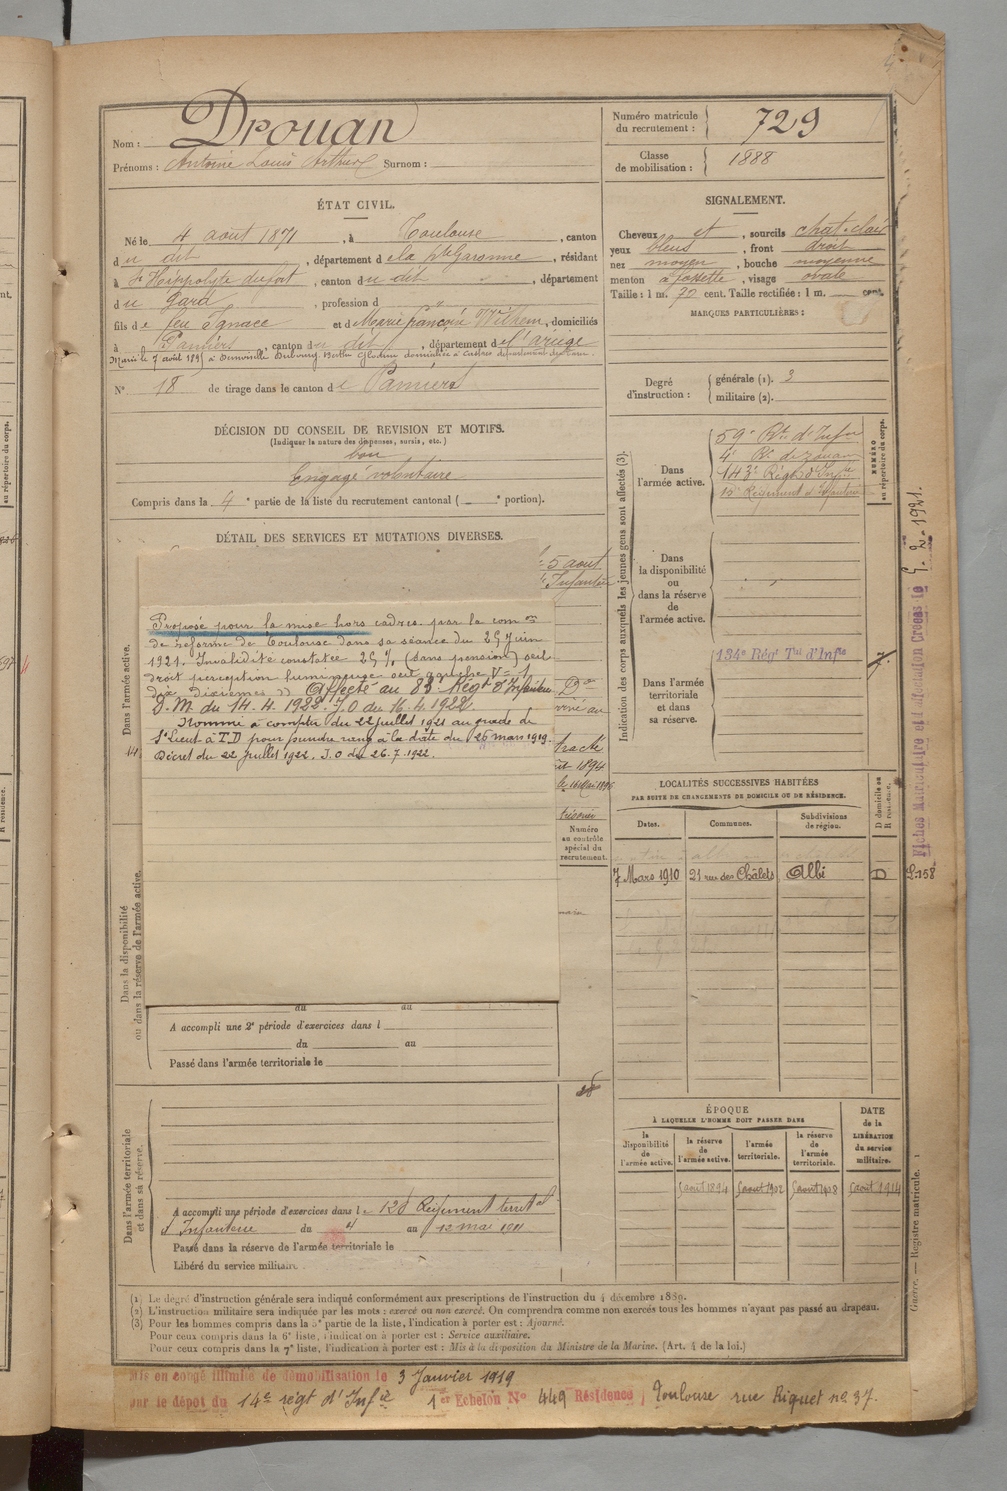 Nom : Drouan
Prénoms : Antoine Louis Arthur Surnom :
Numéro matricule
du recrutement : 729
Classe
de mobilisation : 1888
ÉTAT CIVIL.
Né le 4 août 1871, à Toulouse, canton
du dit, département de la Hte Garonne, résidant
à St Hippolyte du fort, canton du dit, département
du Gard, profession d
fils de feu Ignace et de Marie françoise Wilhem, domiciliés
à Pamiers, canton du dit, département de l'ariège
Marié le 7 août 1895 à
N° 18 de tirage dans le canton de Pamiers
SIGNALEMENT.
Cheveux et, sourcils chat. clair
yeux bleus, front droit
nez moyen, bouche moyenne
menton à fossette, visage ovale
Taille : 1 m. 70 cent. Taille rectifiée : 1 m. cent.
MARQUES PARTICULIÈRES :
Degré
d'instruction :
générale (1). 3
militaire (2).
DÉCISION DU CONSEIL DE REVISION ET MOTIFS.
(Indiquer la nature des dispenses, sursis, etc.)
bon
Engagé volontaire
Compris dans la 4e partie de la liste du recrutement cantonal ( e portion).
DÉTAIL DES SERVICES ET MUTATIONS DIVERSES.
5 aout
Infanterie
Proposé pour la mise hors cadres par la comon
de réforme de Toulouse dans sa séance du 25 Juin
1921. Invalidité constatée 25 % (sans pension) oeil
droit perception lumineuse oeil gauche V = 1
dix dixièmes )) Affecté au 83e Régt d'Infanterie
D.M. du 14.4.1922. J.O du 16.4.1922
Nommé à compter du 22 juillet 1921 au grade de
St Lieut à T.D pour prendre rang à la date du 26 mars 1919.
Décret du 22 juillet 1922. J.O du 26.7.1922.
tracté
1894
Numéro
au contrôle
spécial du
recrutement.
Dans l'armée active.
Dans la disponibilité
ou dans la réserve de l'armée active.
du au
A accompli une 2e période d'exercices dans l
du au
Passé dans l'armée territoriale le
Dans l'armée territoriale
et dans sa réserve.
A accompli une période d'exercices dans le 128 Régiment territal
d'Infanterie du 4 au 12 mai 1911
Passé dans la réserve de l'armée territoriale le
Libéré du service militaire
Indication des corps auxquels les jeunes gens sont affectés (3).
Dans
l'armée active.
59e Rt d'Infie
4e Rt de zouaves
143e Régt d'Infie
15e Régiment d'Infanterie
NUMÉRO
au répertoire du corps.
Dans
la disponibilité
ou
dans la réserve
de
l'armée active.
Dans l'armée
territoriale
et dans
sa réserve.
134e Régt Tal d'Infie
LOCALITÉS SUCCESSIVES HABITÉES
PAR SUITE DE CHANGEMENTS DE DOMICILE OU DE RÉSIDENCE.
Dates. Communes. Subdivisions
de région. D domicile ou
R résidence.
7 Mars 1910 21 rue des Châlets Albi D
ÉPOQUE
À LAQUELLE L'HOMME DOIT PASSER DANS
la
disponibilité
de
l'armée active.
la réserve
de
l'armée active.
l'armée
territoriale.
la réserve
de
l'armée
territoriale.
DATE
de la
LIBÉRATION
du service
militaire.
5 aout 1894 5 aout 1902 5 aout 1908 5 aout 1914
Fiches Matriculaire et d'Affectation Créées le 5.2.1921.
L.158
Guerre. — Registre matricule. 1
(1) Le degré d'instruction générale sera indiqué conformément aux prescriptions de l'instruction du 4 décembre 1889.
(2) L'instruction militaire sera indiquée par les mots : exercé ou non exercé. On comprendra comme non exercés tous les hommes n'ayant pas passé au drapeau.
(3) Pour les hommes compris dans la 5e partie de la liste, l'indication à porter est : Ajourné.
Pour ceux compris dans la 6e liste, l'indication à porter est : Service auxiliaire.
Pour ceux compris dans la 7e liste, l'indication à porter est : Mis à la disposition du Ministre de la Marine. (Art. 4 de la loi.)
Mis en congé illimité de démobilisation le 3 Janvier 1919
par le dépôt du 14e régt d'Infie 1er Echelon N° 449 Résidence Toulouse rue Riquet no 37.